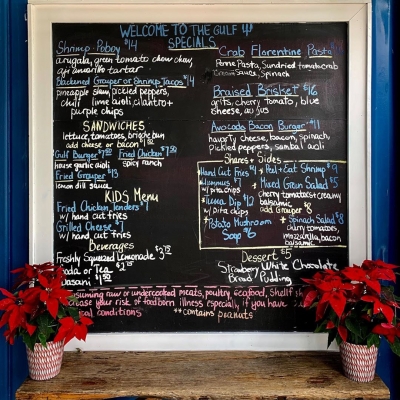 WELCOME TO THE GULF
SPECIALS
Shrimp Poboy $14
arugala, green tomato chow chow,
aji amarillo tartar
Blackened Grouper or Shrimp Tacos $14
pineapple slaw, pickled peppers,
chili lime aioli, cilantro +
purple chips
Crab Florentine Pasta
Penne Pasta, Sundried tomato crab
Cream Sauce, Spinach
Braised Brisket $16
grits, cherry tomato, blue
cheese, au jus
Avocado Bacon Burger $11
havarty cheese, bacon, spinach,
pickled peppers, sambal aioli
SANDWICHES
lettuce, tomatoes, brioche bun
add cheese or bacon
Gulf Burger Fried Chicken
house garlic aioli spicy ranch
Fried Grouper $13
lemon dill sauce
KIDS Menu
Fried Chicken Tenders
w/ hand cut fries
Grilled Cheese
w/ hand cut fries
Beverages
Freshly Squeezed Lemonade
Soda or Tea
Dasani
Shares + Sides
Hand Cut Fries $4
Hummus
w/ pita chips
Tuna Dip $12
w/ pita chips
Potato Mushroom
Soup $6
Peel + Eat Shrimp $9
Mixed Green Salad $5
cherry tomatoes + creamy
balsamic
add Grouper $8
Spinach Salad $8
cherry tomatoes,
mozzarella, bacon
balsamic
Dessert $5
Strawberry White Chocolate
Bread Pudding
raw or undercooked meats, poultry, seafood,
your risk of foodborn illness especially if you have
conditions **contains peanuts